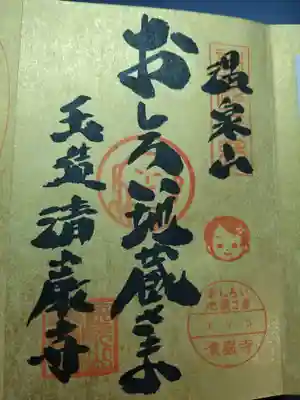 温泉山
おしろい地蔵さま
玉造清巖寺
おしろい
地蔵さま
清巖寺